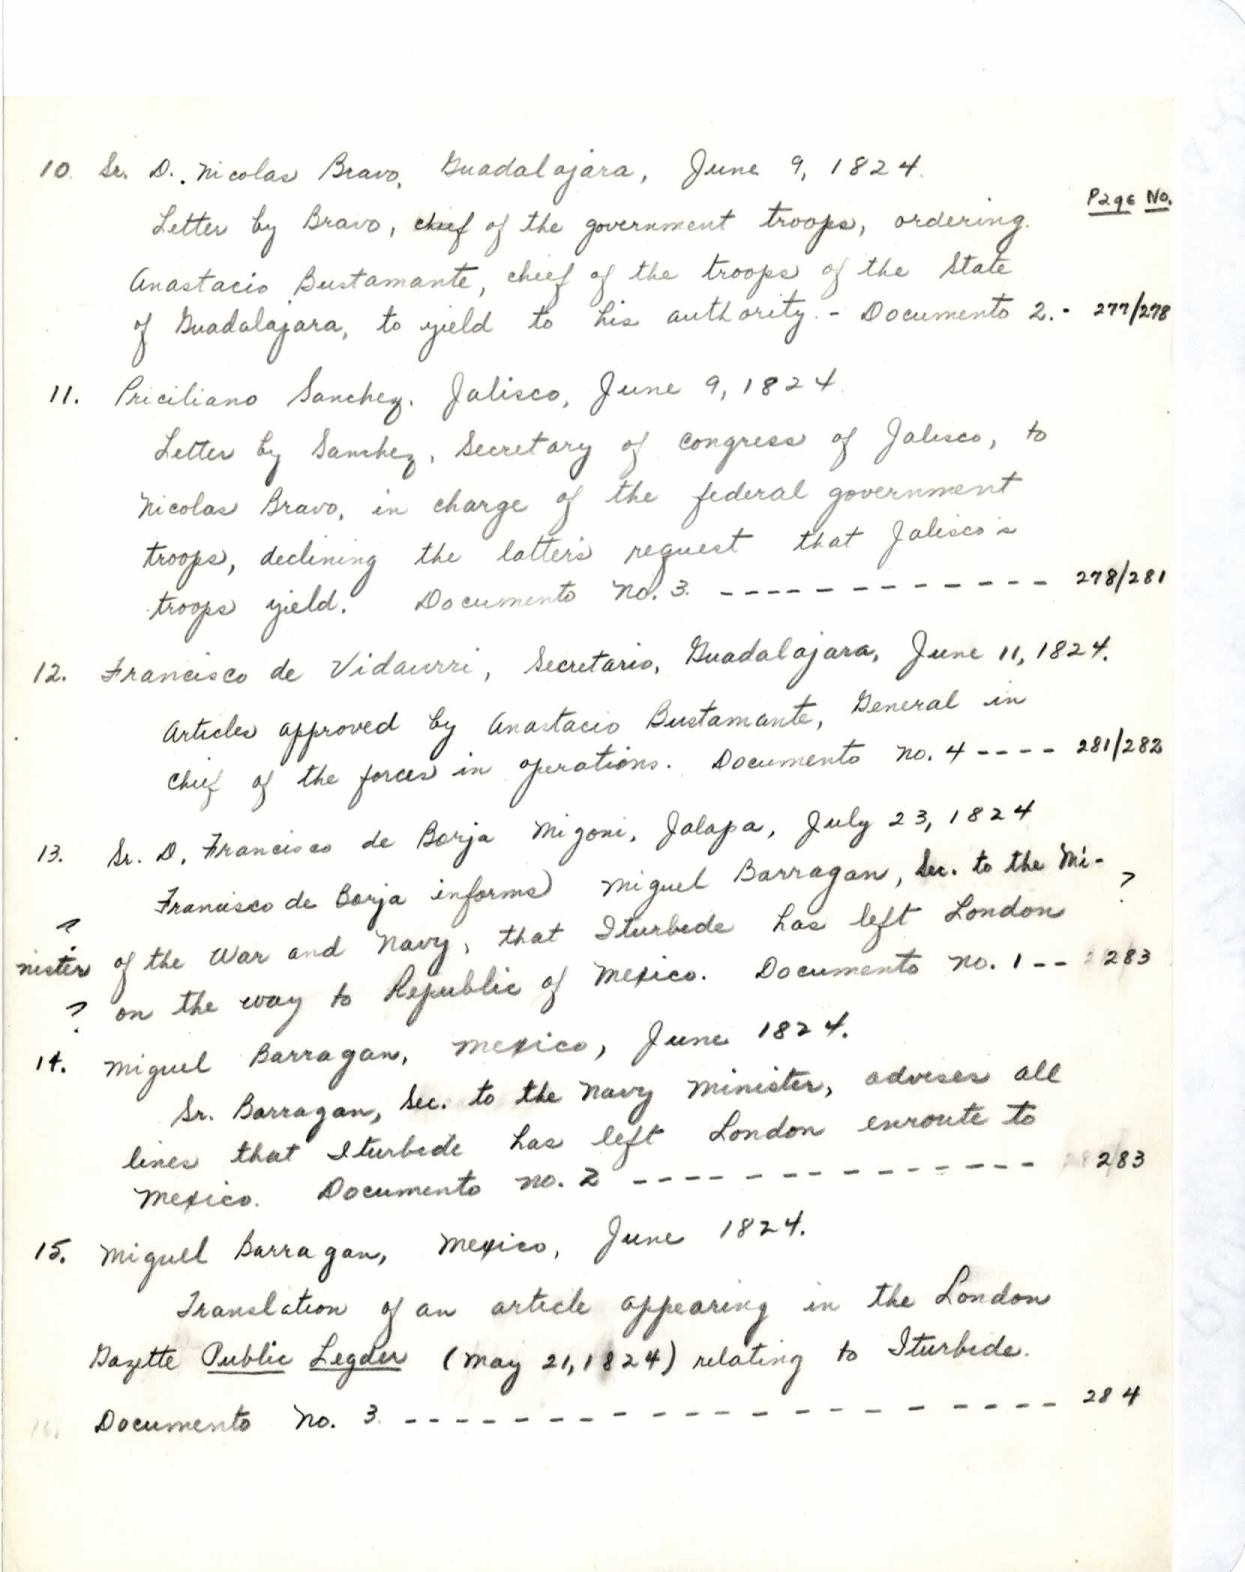 10. Sr. D. Nicolas Bravo, Guadalajara, June 9, 1824.
Page No.
Letter by Bravo, chief of the government troops, ordering
Anastacio Bustamante, chief of the troops of the State
of Guadalajara, to yield to his authority. - Documento 2. - 277/278
11. Priciliano Sanchez. Jalisco, June 9, 1824
Letter by Sanchez, Secretary of Congress of Jalisco, to
Nicolas Bravo, in charge of the federal government
troops, declining the latter's request that Jalisco's
troops yield. Documento No. 3. ------------ 278/281
12. Francisco de Vidaurri, Secretario, Guadalajara, June 11, 1824.
Articles approved by Anastacio Bustamante, General in
chief of the forces in operations. Documento no. 4 ---- 281/282
13. Sr. D. Francisco de Borja Migoni, Jalapa, July 23, 1824
Francisco de Borja informs Miguel Barragan, Sec. to the Mi- ?
?
nister of the War and Navy, that Iturbide has left London
? on the way to Republic of Mexico. Documento no. 1 -- 283
14. Miguel Barragan, Mexico, June 1824.
Sr. Barragan, Sec. to the Navy Minister, advises all
lines that Iturbide has left London enroute to
Mexico. Documento no. 2 ------------- 283
15. Miguel Barragan, Mexico, June 1824.
Translation of an article appearing in the London
Gazette Public Legder (May 21, 1824) relating to Iturbide.
16. Documento No. 3. -------------------- 284